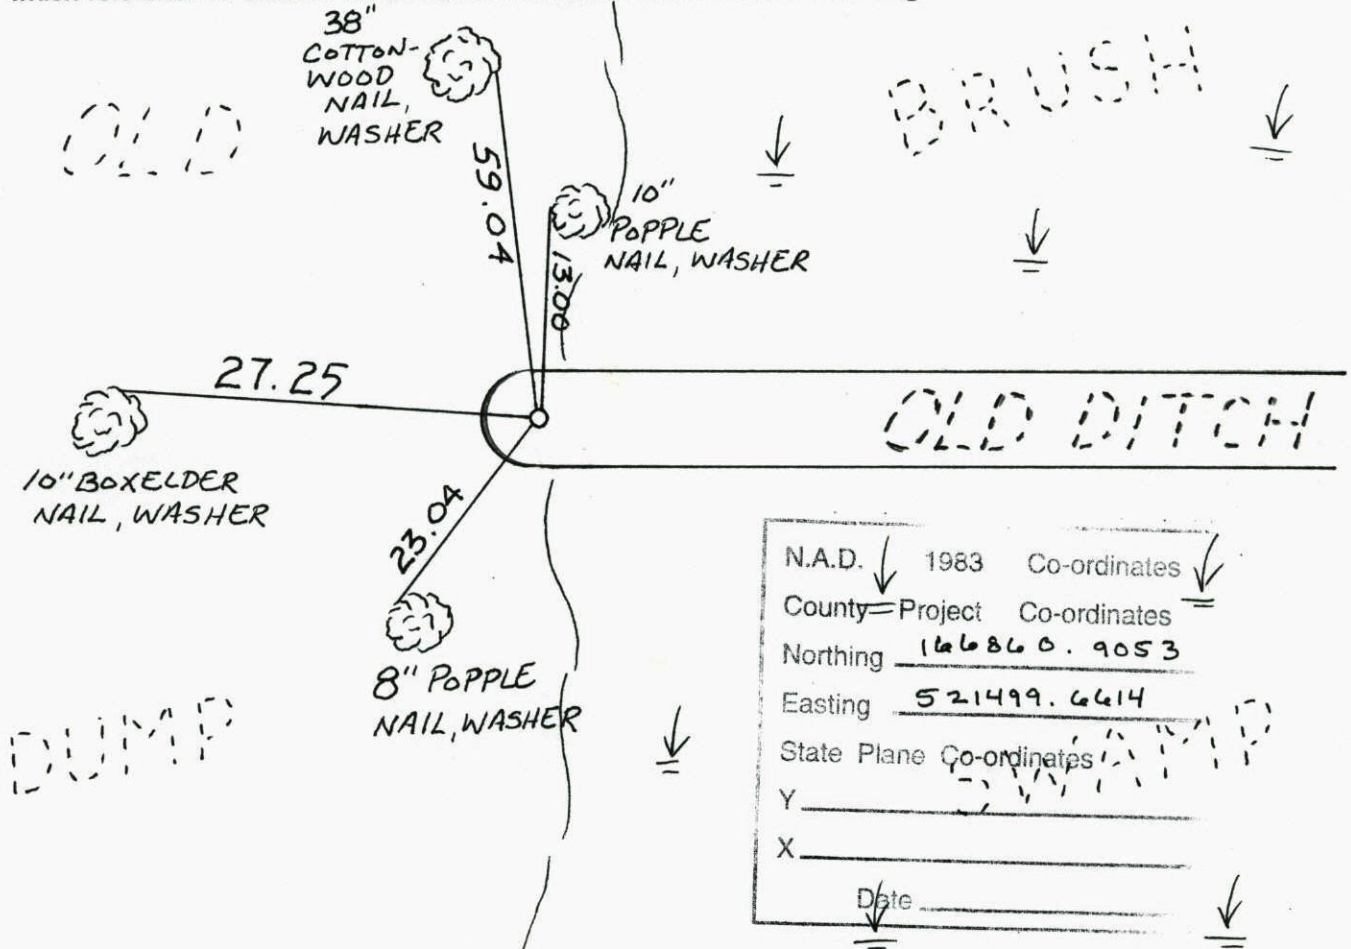 38"
COTTON-
WOOD
NAIL,
WASHER
59.04
OLD
BRUSH
10"
POPPLE
NAIL, WASHER
13.00
27.25
OLD DITCH
10" BOXELDER
NAIL, WASHER
23.04
8" POPPLE
NAIL, WASHER
DUMP
N.A.D. 1983 Co-ordinates
County Project Co-ordinates
Northing 166860.9053
Easting 521499.6614
State Plane Co-ordinates
SWAMP
Y
X
Date